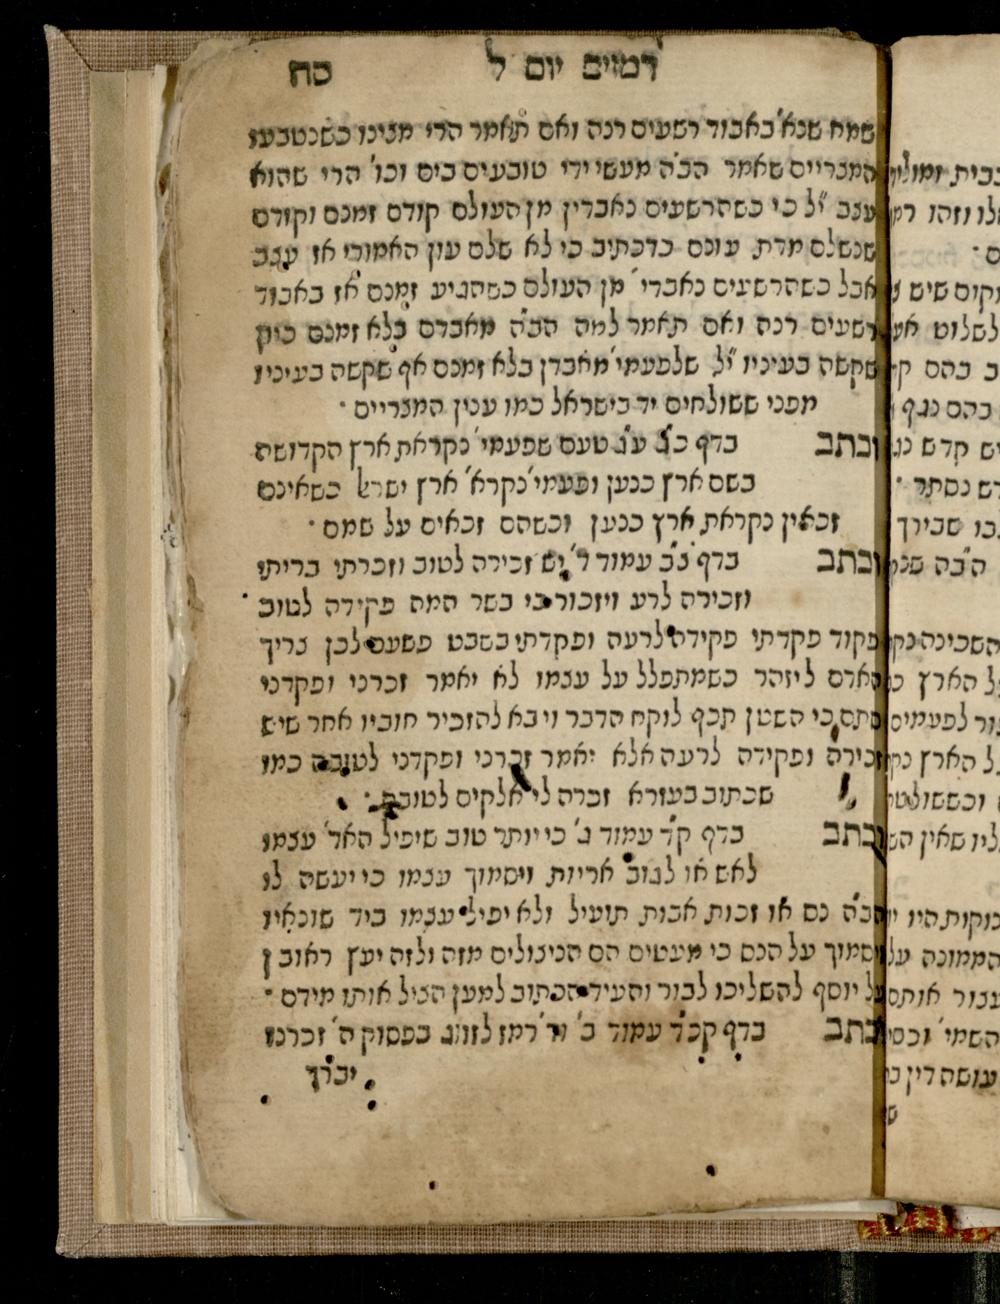 רמזים יום ל כח
שמח שנא' באבוד רשעים רנה ואם תאמר הרי מצינו כשנטבעו
המצריים שאמר הב"ה מעשי ידי טובעים בים וכו' הרי שהוא
עצב י"ל כי כשהרשעים נאבדין מן העולם קודם זמנם וקודם
שנשלם מדת עונם כדכתיב כי לא שלם עון האמורי אז עצב
אבל כשהרשעים נאבדי' מן העולם כשהגיע זמנם אז באבוד
רשעים רנה ואם תאמר למה הב"ה מאבדם בלא זמנם כיון
שקשה בעיניו י"ל שלפעמי' מאבדן בלא זמנם אף שקשה בעיניו
מפני ששולחים יד בישראל כמו ענין המצריים ·
וכתב בדף כ"ב ע"ג טעם שפעמי' נקראת ארץ הקדושה
בשם ארץ כנען ופעמי' נקרא' ארץ ישרא' כשאינם
זכאין נקראת ארץ כנען וכשהם זכאים על שמם ·
וכתב בדף נ"ב עמוד ד' יש זכירה לטוב וזכרתי בריתי
וזכירה לרע ויזכור כי בשר המה פקידה לטוב ·
פקוד פקדתי פקידה לרעה ופקדתי בשבט פשעם לכן צריך
האדם ליזהר כשמתפלל על עצמו לא יאמר זכרני ופקדני
סתם כי השטן תכף לוקח הדבר ויבא להזכיר חוביו אחר שיש
זכירה ופקידה לרעה אלא יאמר זכרני ופקדני לטובה כמו
שכתוב בעזרא זכרה לי אלקים לטובה ·
וכתב בדף ק"ד עמוד ג' כי יותר טוב שיפיל האד' עצמו
לאש או לגוב אריות ויסמוך עצמו כי יעשה לו
הב"ה נס או זכות אבות תועיל ולא יפיל עצמו ביד שונאיו
ויסמוך על הנס כי מעטים הם הניצולים מזה ולזה יעץ ראובן
על יוסף להשליכו לבור והעיד הכתוב למען הציל אותו מידם ·
וכתב בדף קכ"ד עמוד ב' רמז לזווג בפסוק ה' זכרנו
יברך